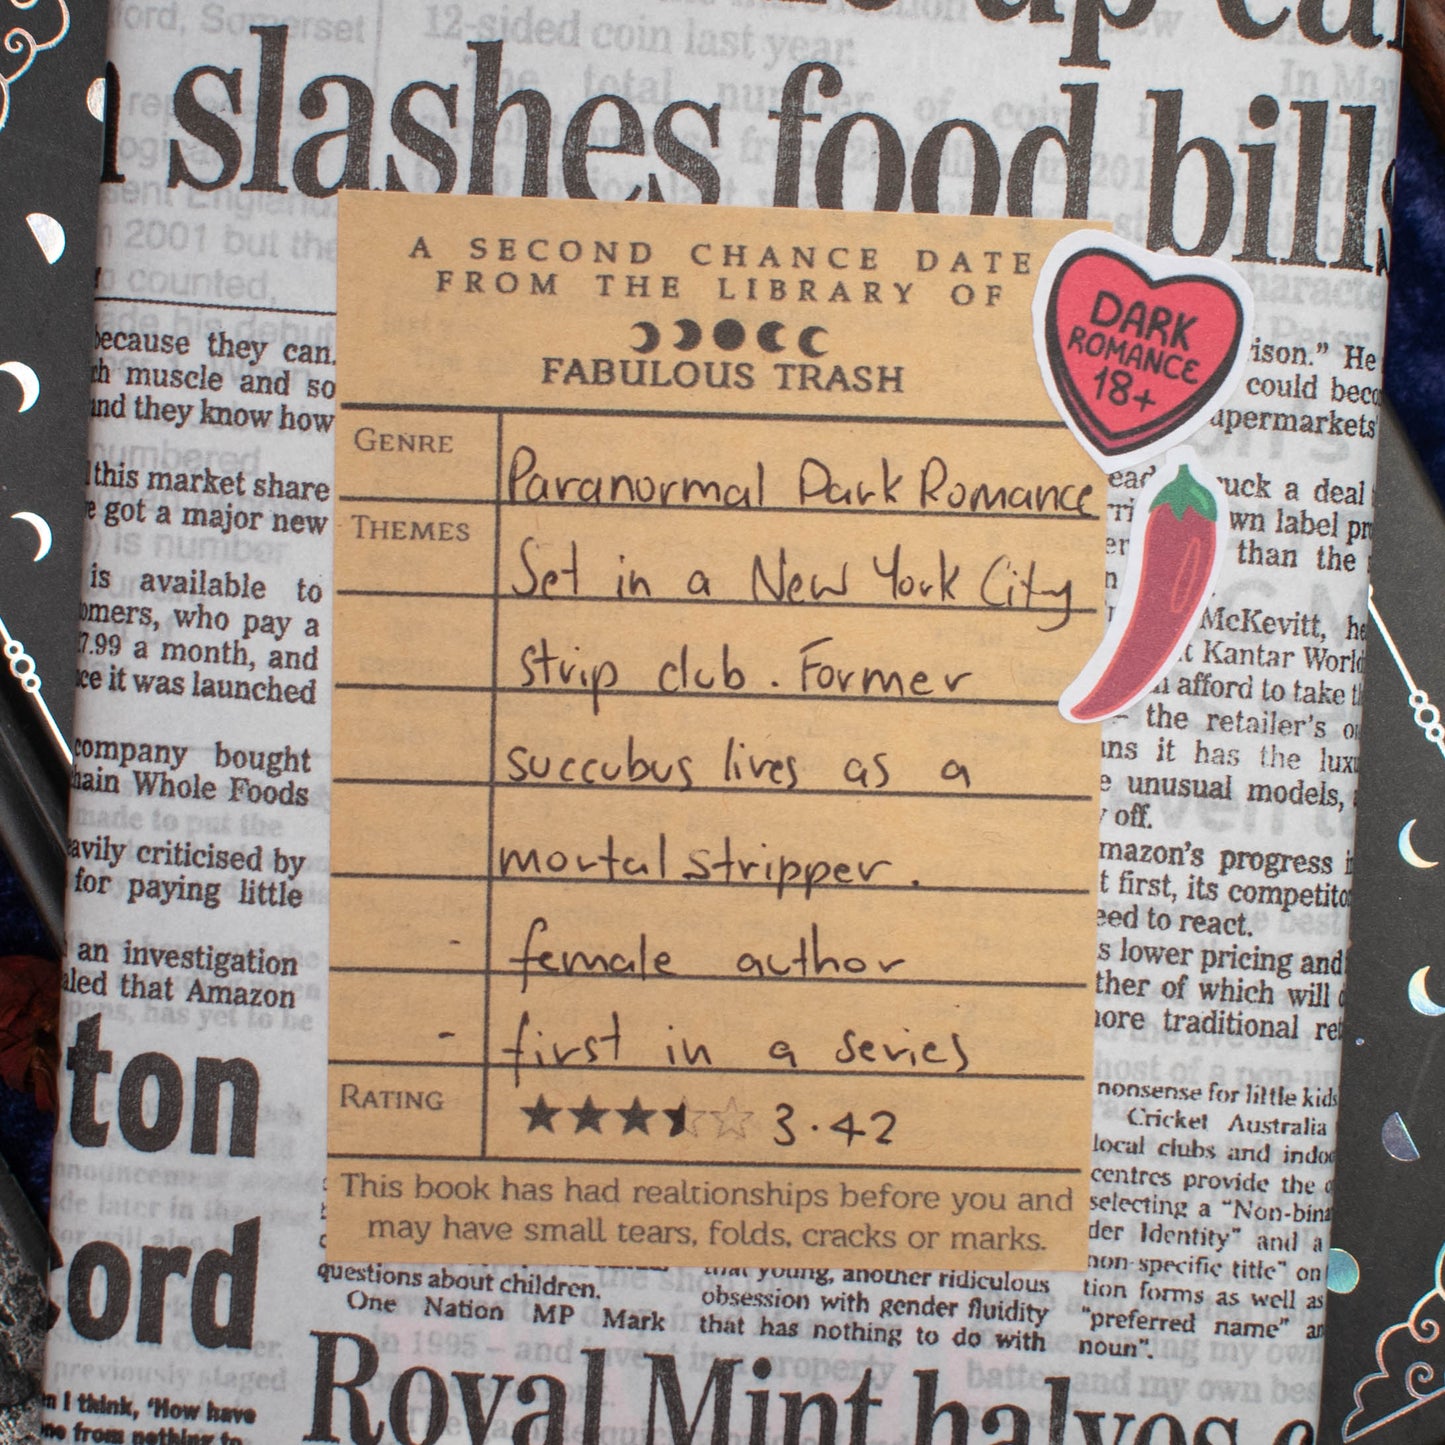 slashes food bills
12-sided coin last year.
A SECOND CHANCE DATE
FROM THE LIBRARY OF
FABULOUS TRASH
DARK
ROMANCE
18+
GENRE
Paranormal Dark Romance
THEMES
Set in a New York City
strip club. Former
succubus lives as a
mortal stripper.
- female author
- first in a series
RATING
3.42
This book has had realtionships before you and
may have small tears, folds, cracks or marks.
because they can.
muscle and so
and they know how
this market share
got a major new
is available to
who pay a
7.99 a month, and
it was launched
company bought
Whole Foods
heavily criticised by
for paying little
an investigation
that Amazon
ton
cord
I think, 'How have
from nothing to
questions about children.
One Nation MP Mark
that young, another ridiculous
obsession with gender fluidity
that has nothing to do with
Royal Mint halves
He
could
supermarkets'
a deal
own label
than the
McKevitt,
Kantar
afford to take
the retailer's
it has the
unusual models,
off.
Amazon's progress
first, its
need to react.
lower pricing and
of which will
more traditional
nonsense for little kids
Cricket Australia
local clubs and
centres provide the
selecting a
Identity" and a
non-specific title" on
tion forms as well as
"preferred name"
noun".